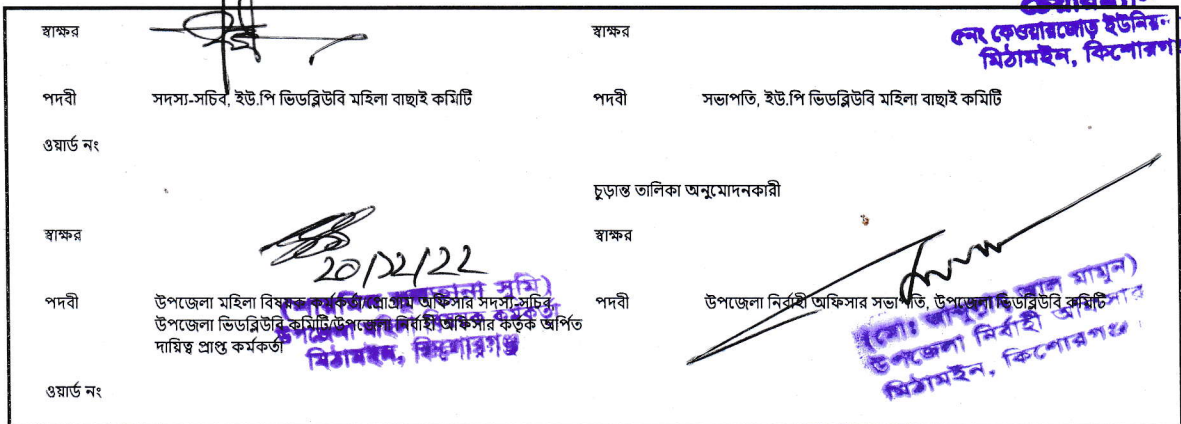 স্বাক্ষর
স্বাক্ষর
৫নং কেওয়ারজোড় ইউনিয়ন
মিঠামইন, কিশোরগঞ্জ
পদবী সদস্য-সচিব, ইউ.পি ভিডব্লিউবি মহিলা বাছাই কমিটি
পদবী সভাপতি, ইউ.পি ভিডব্লিউবি মহিলা বাছাই কমিটি
ওয়ার্ড নং
চুড়ান্ত তালিকা অনুমোদনকারী
স্বাক্ষর
20/12/22
স্বাক্ষর
পদবী উপজেলা মহিলা বিষয়ক কর্মকর্তা/প্রোগ্রাম অফিসার সদস্য-সচিব,
উপজেলা ভিডব্লিউবি কমিটি/উপজেলা নির্বাহী অফিসার কর্তৃক অর্পিত
দায়িত্ব প্রাপ্ত কর্মকর্তা
মিঠামইন, কিশোরগঞ্জ
পদবী উপজেলা নির্বাহী অফিসার সভাপতি, উপজেলা ভিডব্লিউবি কমিটি
উপজেলা নির্বাহী অফিসার
মিঠামইন, কিশোরগঞ্জ
ওয়ার্ড নং